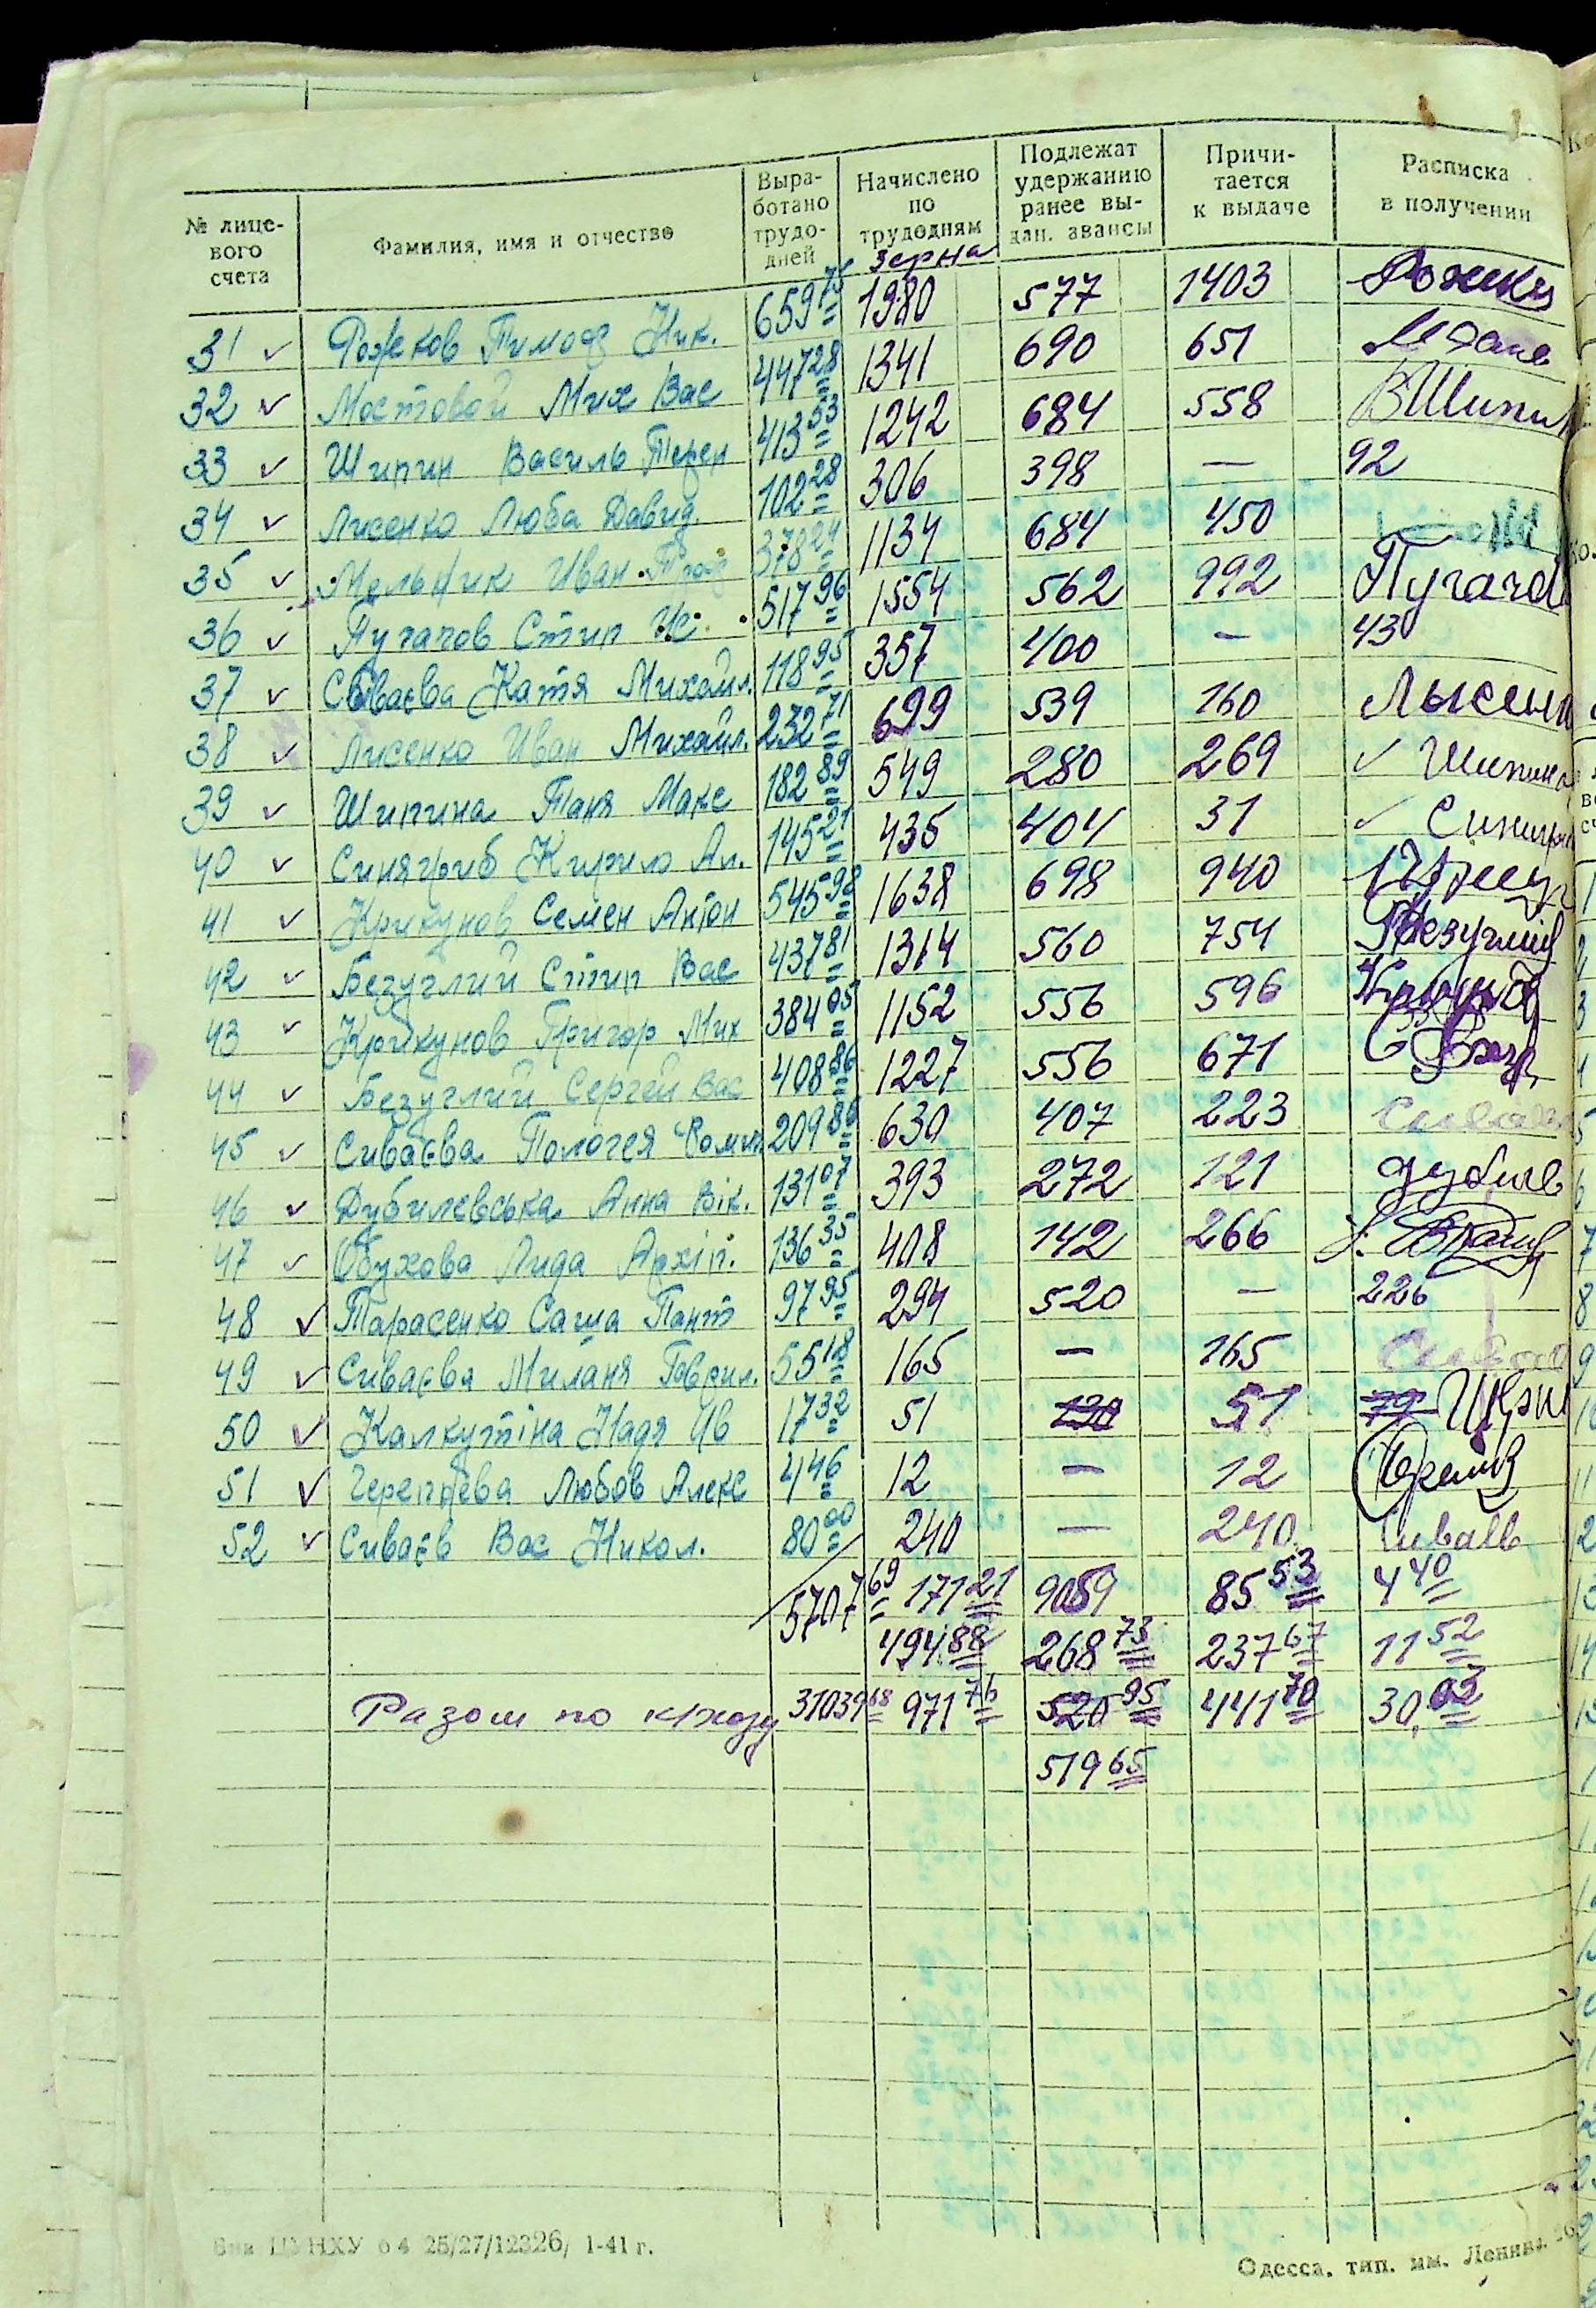 № лице-вого счета Фамилия, имя и отчество Выра-ботано трудо-дней Начислено по трудодням зерна Подлежат удержанию ранее вы-дан. авансы Причи-тается к выдаче Расписка в получении
31 Рожков Тимоф Ник. 659 75 1980 577 1403
32 Мостовой Мих Вас 447 28 1341 690 651
33 Шипин Василь Терен 413 53 1242 684 558 ВШипин
34 Лисенко Люба Давид. 102 28 306 398 — 92
35 Мельник Иван 378 24 1134 684 450
36 Пугачов Стип 517 96 1554 562 992 Пугачов
37 Сіваєва Катя Михайл. 118 95 357 400 — 43
38 Лисенко Иван Михайл. 232 71 699 539 160 Лысенк
39 Шипина Таня Макс 182 89 549 280 269 Шипина
40 Синягриб Кирило Ан. 145 21 435 404 31
41 Крикунов Семен Антон 545 98 1638 698 940
42 Безуглий Стип Вас 437 81 1314 560 754 Безуглий
43 Крикунов Григор Мих 384 05 1152 556 596
44 Безуглий Сергей Вас 408 86 1227 556 671
45 Сиваєва Пологея 209 86 630 407 223
46 Дубилевська Анна Вік. 131 07 393 272 121 Дубилв
47 Обухова Лида Архіп. 136 35 408 142 266
48 Тарасенко Саша Пант 97 95 294 520 — 226
49 Сиваєва Миланя Гаврил. 55 18 165 — 165
50 Калкутіна Надя Ив 17 32 51 120 51 79
51 Черепнева Любов Алекс 4 46 12 — 12
52 Сиваєв Вас Никол. 80 00 240 — 240
5707 69 171 21 9059 85 53 4 40
494 88 268 73 237 67 11 52
Разом по к/хозу 31039 68 971 76 520 95 441 70 30,03
519 65
ЦУНХУ о4 25/27/12326, 1-41 г.
Одесса, тип. им. Ленина